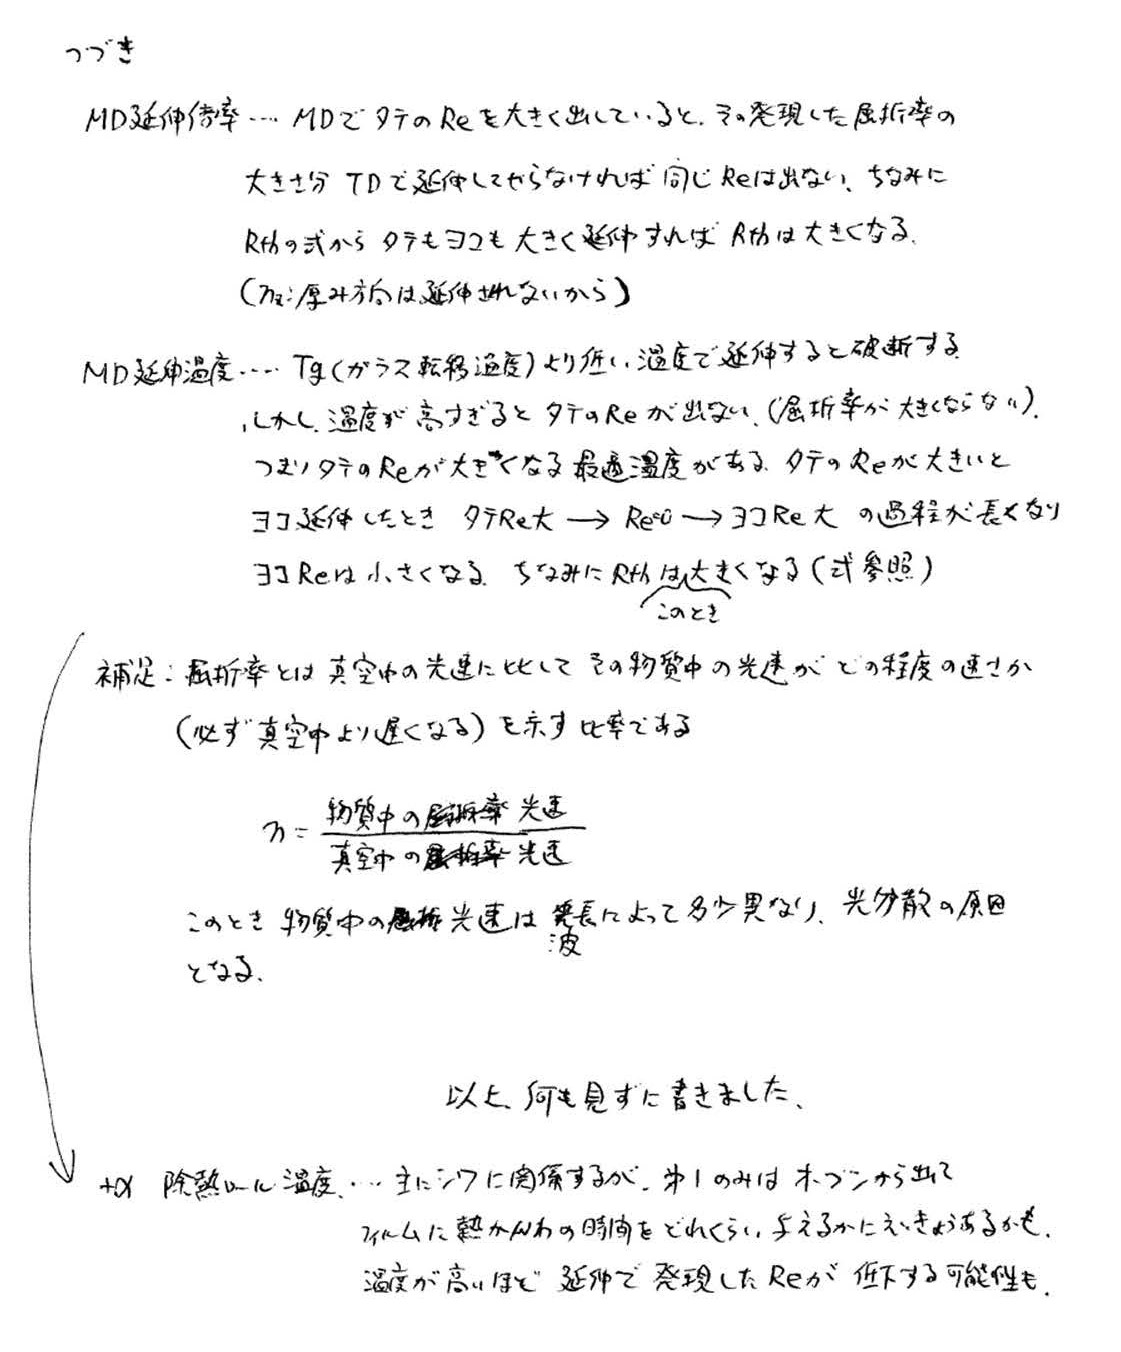 つづき
MD延伸倍率…. MDでタテのReを大きく出していると、その発現した屈折率の
大きさ分 TDで延伸してやらなければ同じReは出ない、ちなみに
Rthの式からタテもヨコも大きく延伸すればRthは大きくなる。
(nz:厚み方向は延伸されないから)
MD延伸温度…. Tg(ガラス転移温度)より低い温度で延伸すると破断する
しかし、温度が高すぎるとタテのReが出ない、(屈折率が大きくならない)。
つまりタテのReが大きくなる最適温度がある。タテのReが大きいと
ヨコ延伸したとき タテRe大 → Re=0 → ヨコRe大 の過程が長くなり
ヨコReは小さくなる。ちなみにRthは大きくなる(式参照)
このとき
補足:屈折率とは真空中の光速に比してその物質中の光速がどの程度の速さか
(必ず真空中より遅くなる)を示す比率である
n= 物質中の光速
真空中の光速
このとき 物質中の光速は波長によって多少異なり、光分散の原因
となる。
以上、何も見ずに書きました、
+α 除熱ロール温度、… 主にシワに関係するが、第1のみはオーブンから出て
フィルムに熱かんわの時間をどれくらい与えるかにえいきょうあるかも、
温度が高いほど 延伸で発現したReが低下する可能性も、